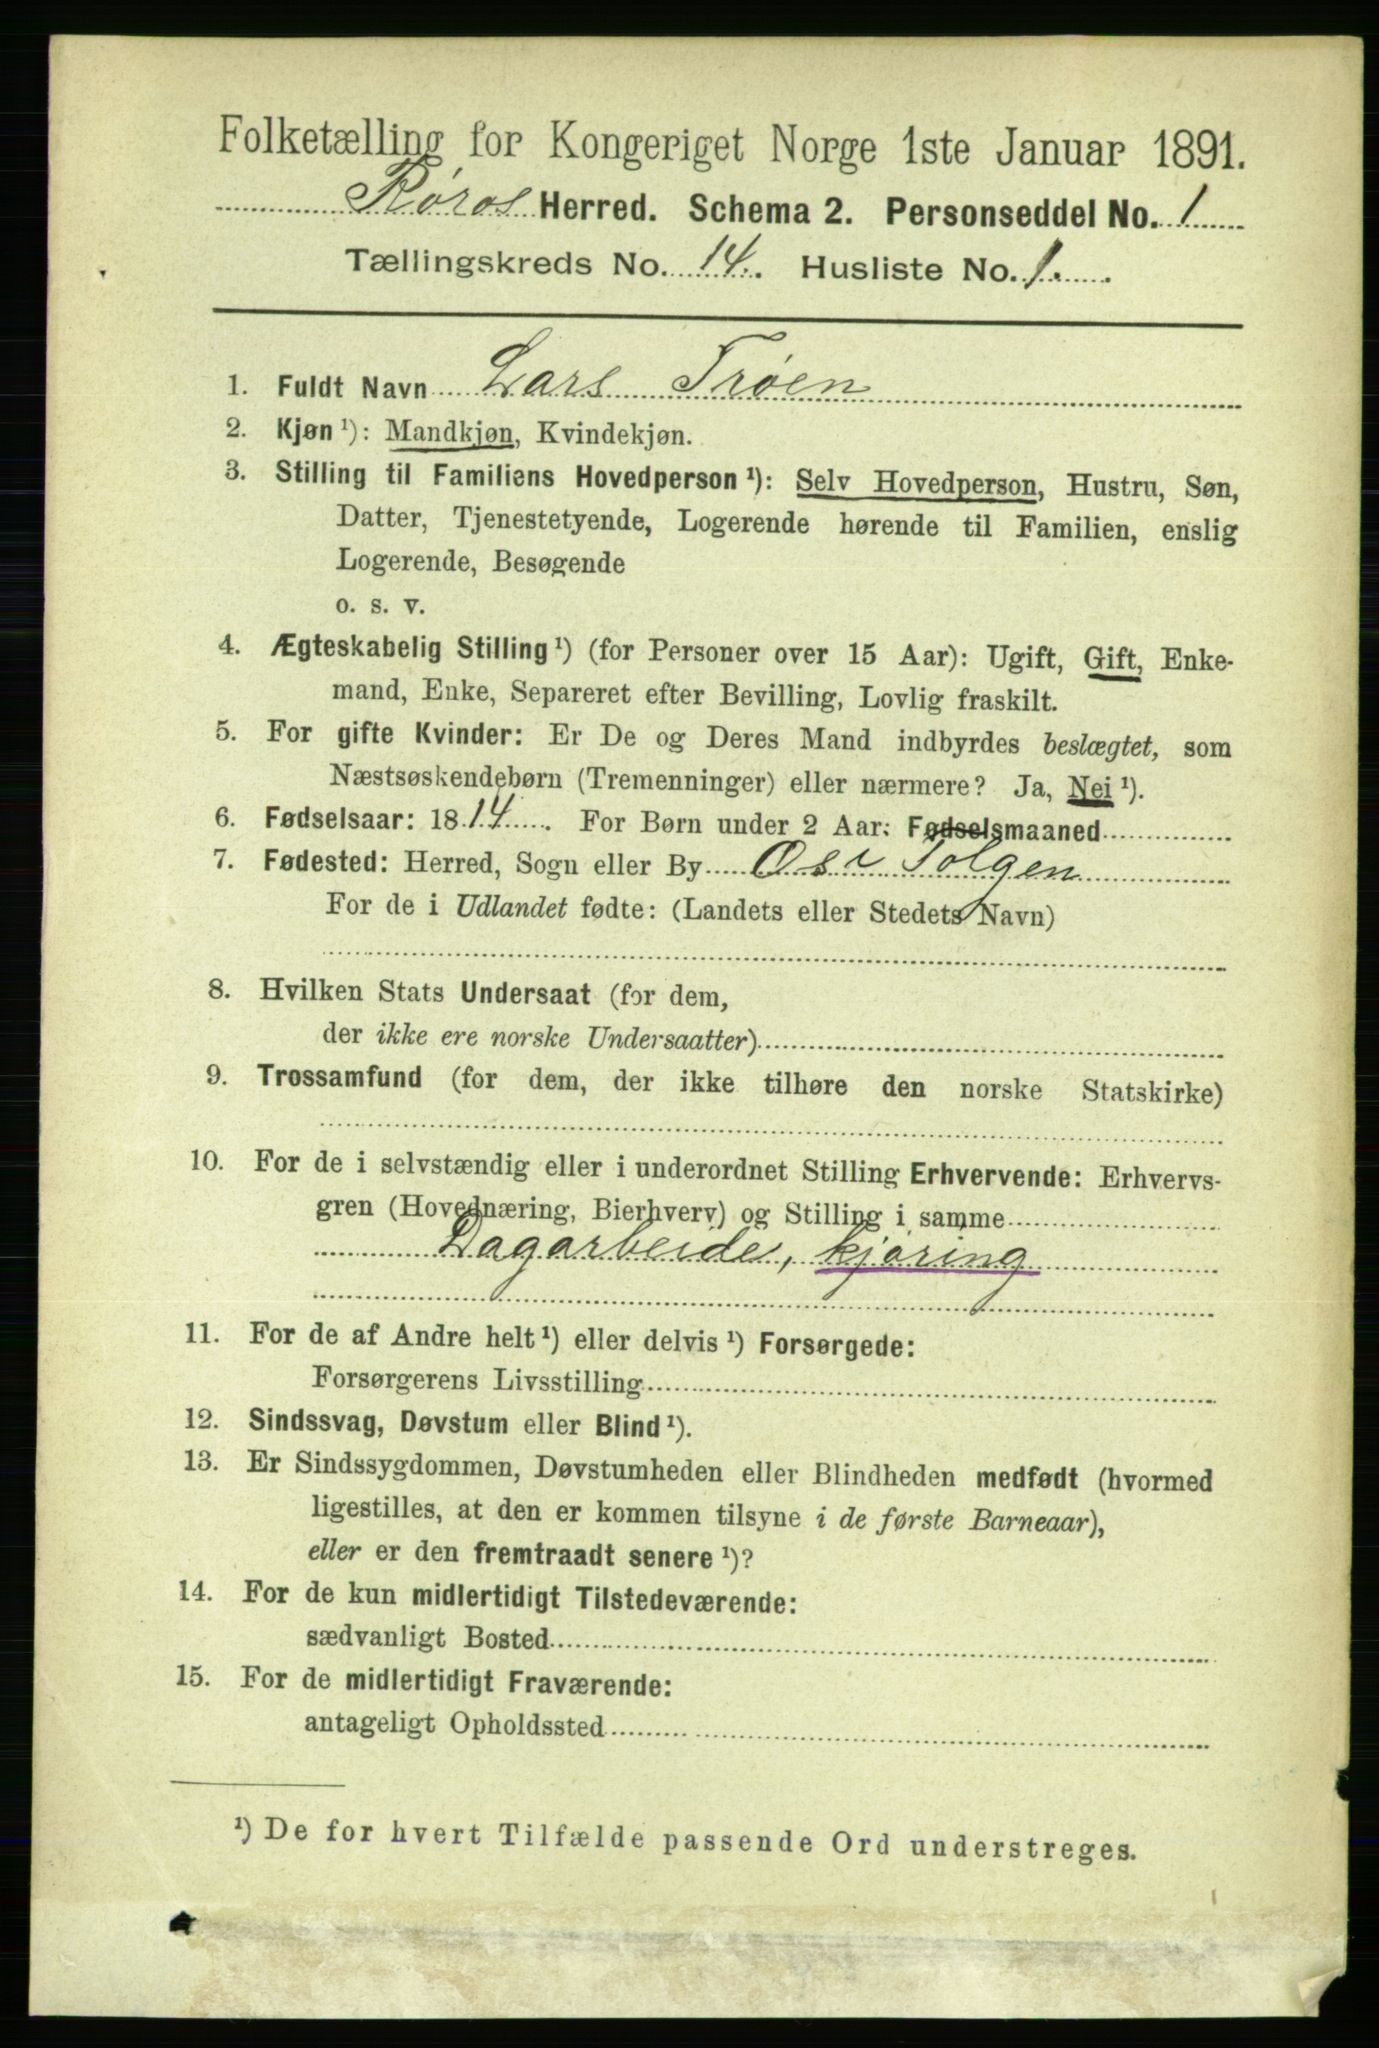 Folketælling for Kongeriget Norge 1ste Januar 1891.
Røros Herred. Schema 2. Personseddel No. 1
Tællingskreds No. 14. Husliste No. 1.
1. Fuldt Navn Lars Trøen
2. Kjøn ¹): Mandkjøn, Kvindekjøn.
3. Stilling til Familiens Hovedperson ¹): Selv Hovedperson, Hustru, Søn,
Datter, Tjenestetyende, Logerende hørende til Familien, enslig
Logerende, Besøgende
o. s. v.
4. Ægteskabelig Stilling ¹) (for Personer over 15 Aar): Ugift, Gift, Enke-
mand, Enke, Separeret efter Bevilling, Lovlig fraskilt.
5. For gifte Kvinder: Er De og Deres Mand indbyrdes beslægtet, som
Næstsøskendebørn (Tremenninger) eller nærmere? Ja, Nei ¹).
6. Fødselsaar: 1814. For Børn under 2 Aar: Fødselsmaaned
7. Fødested: Herred, Sogn eller By Os i Tolgen
For de i Udlandet fødte: (Landets eller Stedets Navn)
8. Hvilken Stats Undersaat (for dem,
der ikke ere norske Undersaatter)
9. Trossamfund (for dem, der ikke tilhøre den norske Statskirke)
10. For de i selvstændig eller i underordnet Stilling Erhvervende: Erhvervs-
gren (Hovednæring, Bierhverv) og Stilling i samme
Dagarbeide, kjøring
11. For de af Andre helt ¹) eller delvis ¹) Forsørgede:
Forsørgerens Livsstilling
12. Sindssvag, Døvstum eller Blind ¹).
13. Er Sindssygdommen, Døvstumheden eller Blindheden medfødt (hvormed
ligestilles, at den er kommen tilsyne i de første Barneaar),
eller er den fremtraadt senere ¹)?
14. For de kun midlertidigt Tilstedeværende:
sædvanligt Bosted
15. For de midlertidigt Fraværende:
antageligt Opholdssted
¹) De for hvert Tilfælde passende Ord understreges.